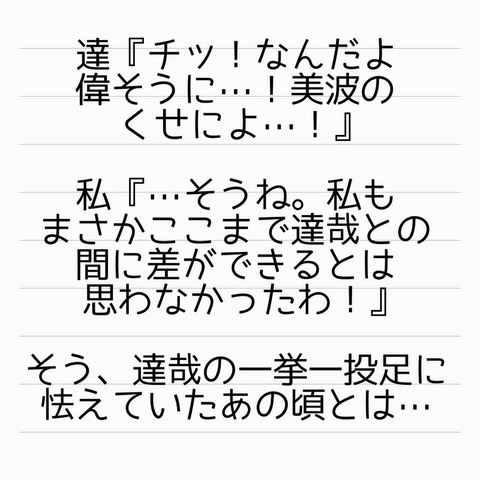 達『チッ！なんだよ
偉そうに…！美波の
くせによ…！』
私『…そうね。私も
まさかここまで達哉との
間に差ができるとは
思わなかったわ！』
そう、達哉の一挙一投足に
怯えていたあの頃とは…